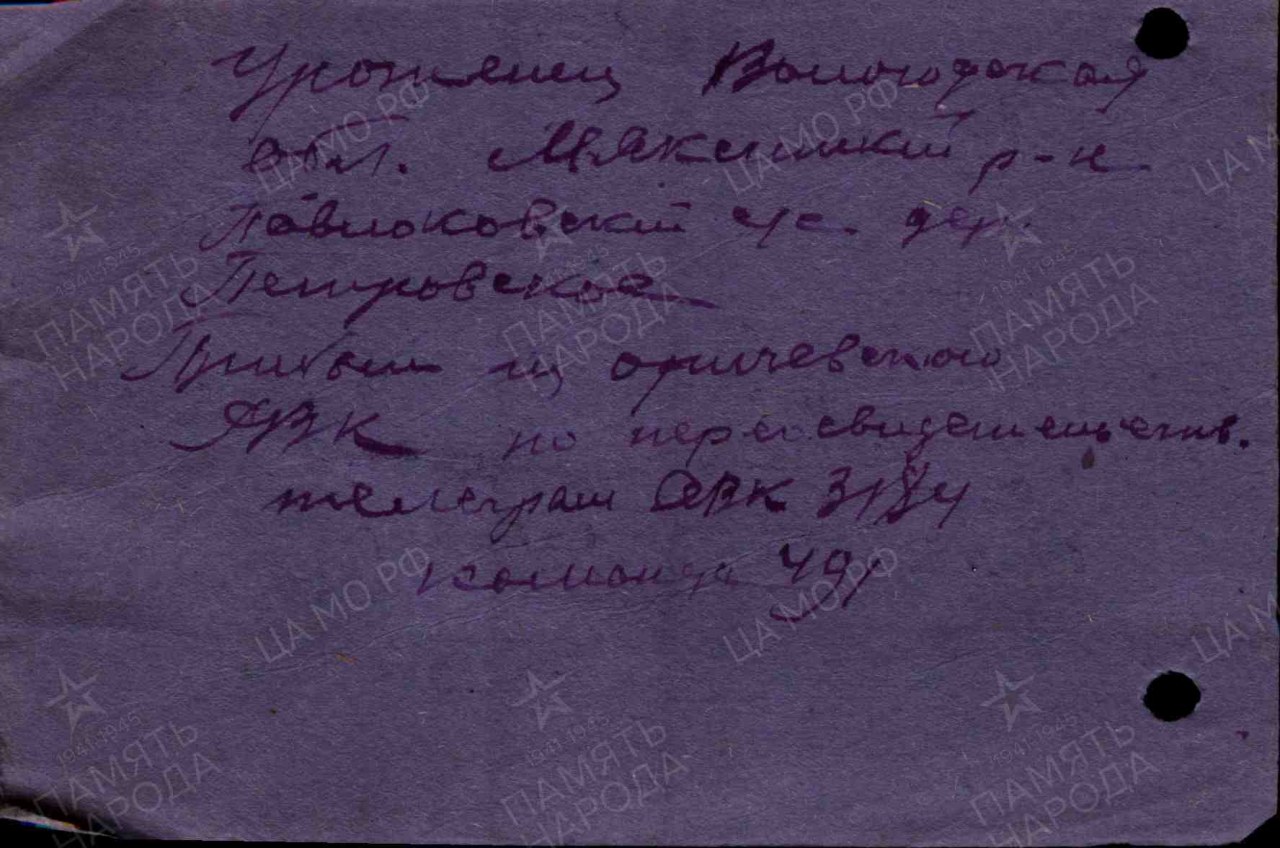 Уроженец Вологодская
обл. Мяксинский р-н
Павлоковский с/с. дер.
Петровское
Прибыл из оричевского
РВК по переосвидетельств.
телеграм ОВК 3184
команда 49
ЦА МО РФ
1941-1945
ПАМЯТЬ
НАРОДА